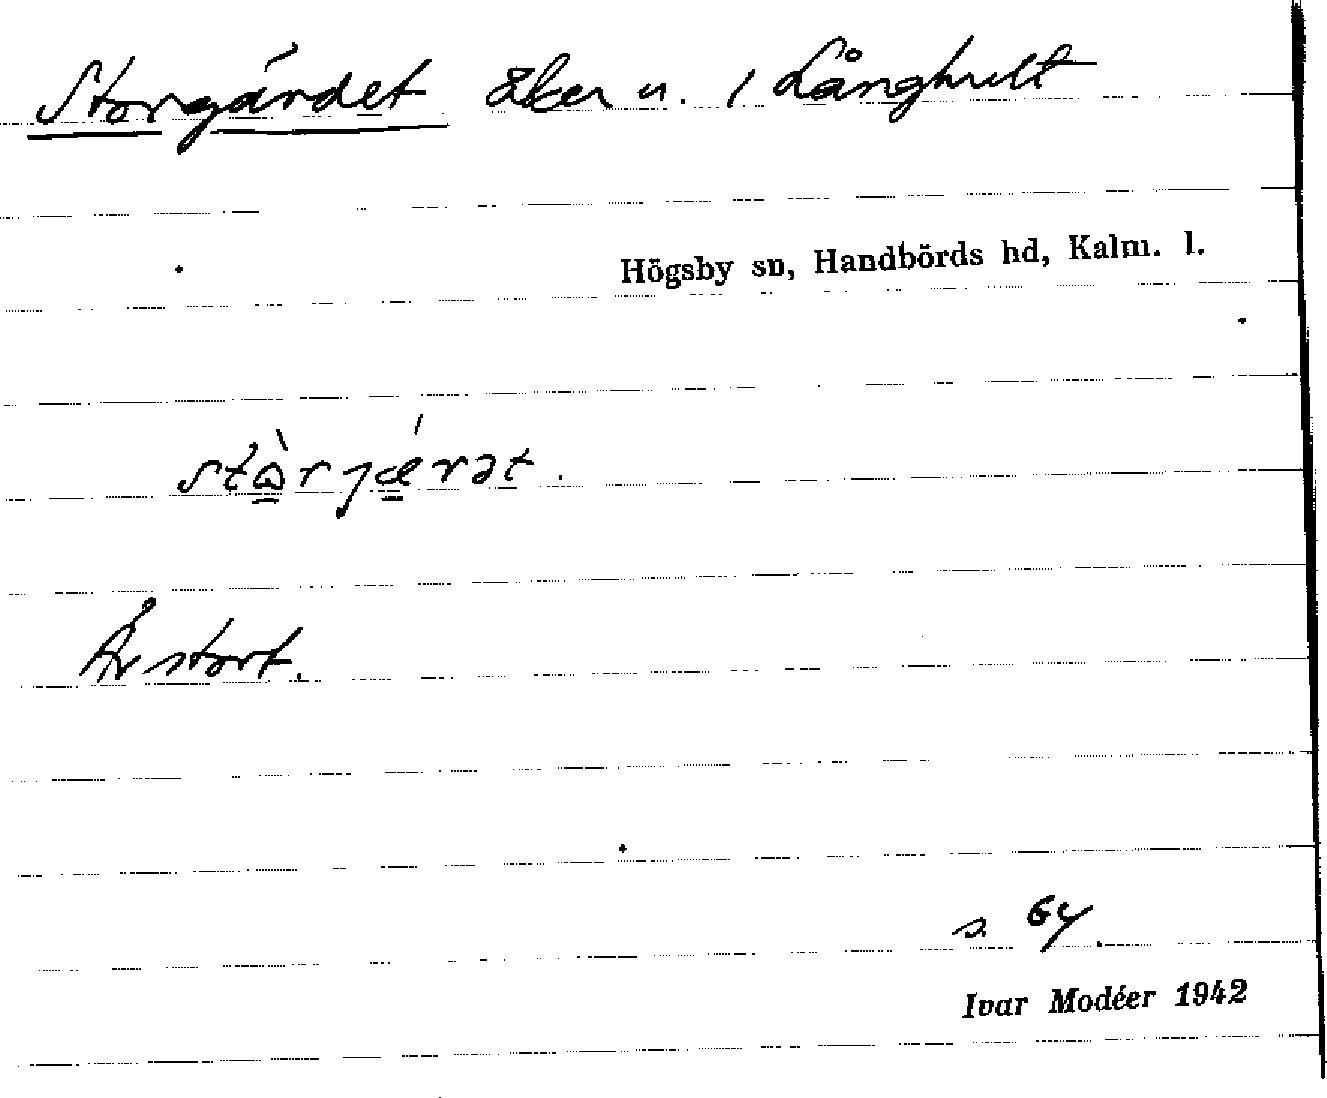 Storgärdet åker n. 1 Långhult
Högsby sn, Handbörds hd, Kalm. l.
stɷ̀rjǽrət.
Är stort.
s. 64.
Ivar Modéer 1942